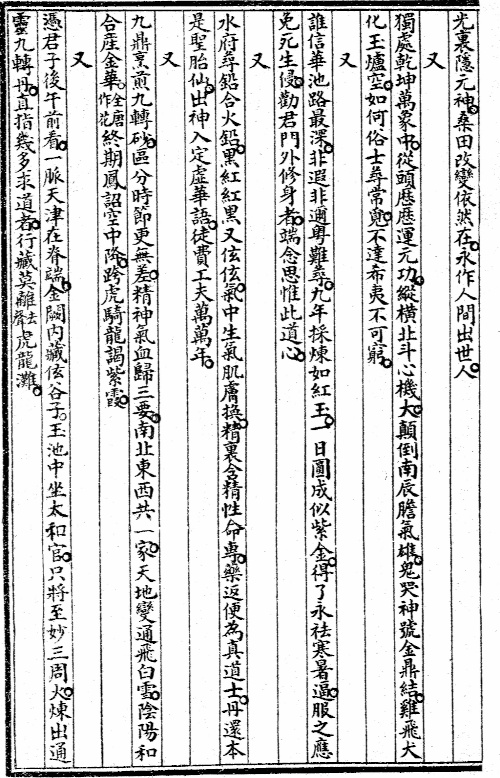 光裏隱元神桑田改變依然在永作人間出世人
又
獨處乾坤萬象中從頭歷歷運元功縱橫北斗心機大顛倒南辰膽氣雄鬼哭神號金鼎結雞飛犬
化玉爐空如何俗士尋常覓不達希夷不可窮
又
誰信華池路最深非遐非邇奧難尋九年採煉如紅玉一日圓成似紫金得了永祛寒暑逼服之應
免死生侵勸君門外修身者端念思惟此道心
又
水府尋鉛合火鉛黑紅紅黑又伭伭氣中生氣肌膚換精裏含精性命專藥返便為真道士丹還本
是聖胎仙出神入定虛華語徒費工夫萬萬年
又
九鼎烹煎九轉砂區分時節更無差精神氣血歸三要南北東西共一家天地變通飛白雪陰陽和
合産金華全唐作花終期鳳詔空中降跨虎騎龍謁紫霞
又
憑君子後午前看一脈天津在脊端金闕內藏伭谷子玉池中坐太和官只將至妙三周火煉出通
靈九轉丹直指幾多求道者行藏莫離去聲虎龍灘